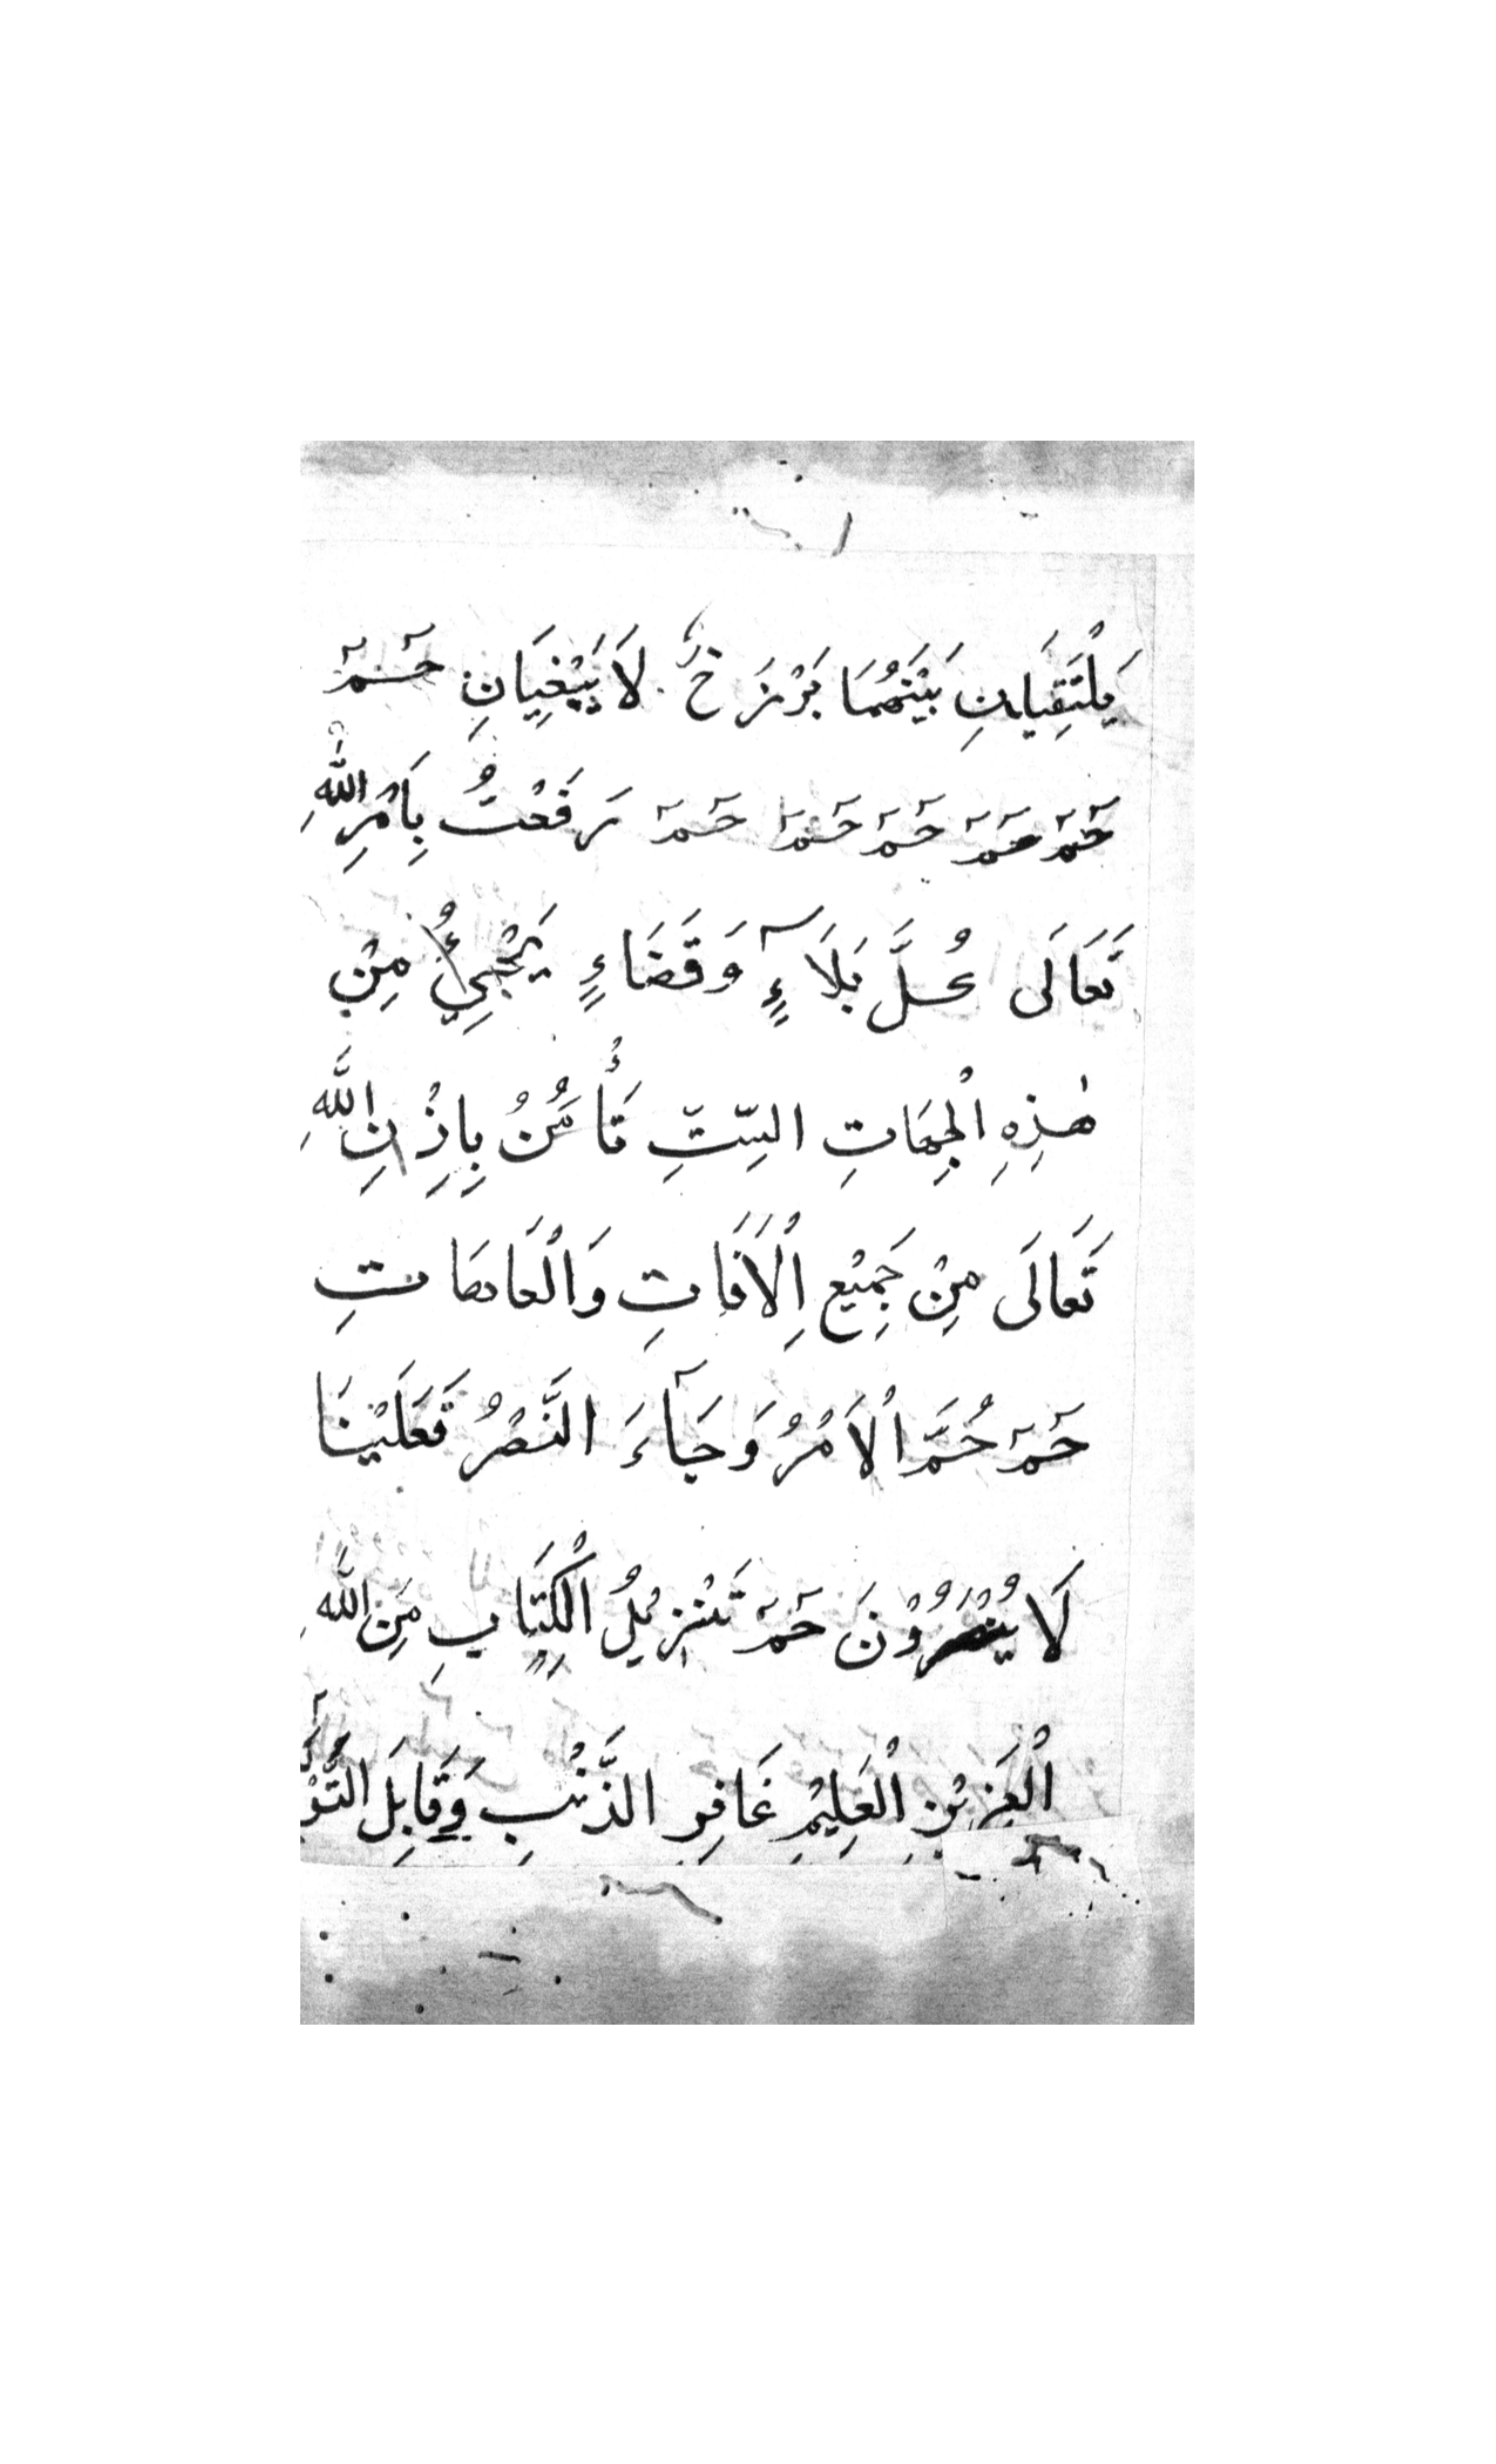 يَلْتَقِيَانِ بَيْنَهُمَا بَرْزَخٌ لَا يَبْغِيَانِ حٰمٓ
حٰمٓ حٰمٓ حٰمٓ حٰمٓ حٰمٓ رَفَعْتُ بِاَمْرِ اللّٰهِ
تَعَالَى كُلَّ بَلَآءٍ وَقَضَاءٍ يَجِيْئُ مِنْ
هٰذِهِ الْجِهَاتِ السِّتِّ تَأْمَنُ بِاِذْنِ اللّٰهِ
تَعَالَى مِنْ جَمِيْعِ الْاَفَاتِ وَالْعَاهَاتِ
حٰمٓ حُمَّ الْاَمْرُ وَجَآءَ النَّصْرُ فَعَلَيْنَا
لَا يُنْصَرُوْنَ حٰمٓ تَنْزِيْلُ الْكِتَابِ مِنَ اللّٰهِ
الْعَزِيْزِ الْعَلِيْمِ غَافِرِ الذَّنْبِ وَقَابِلِ التَّوْ